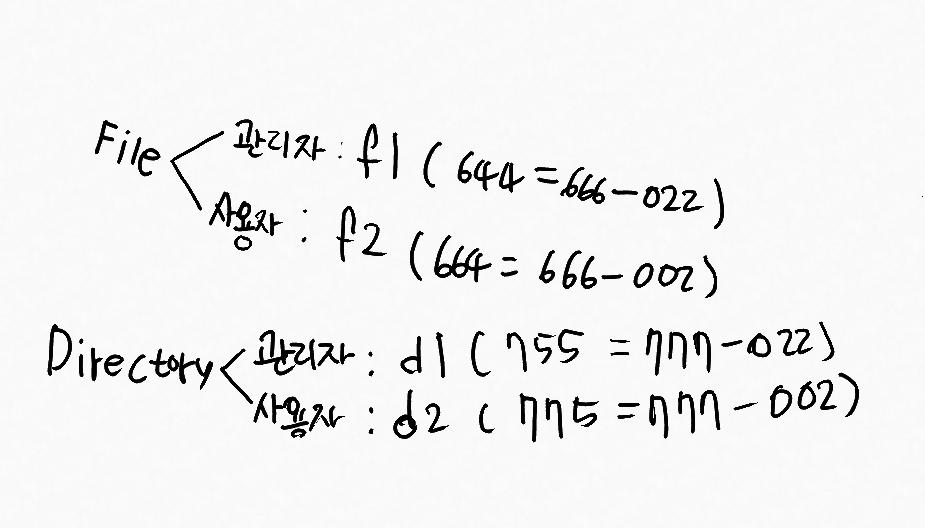 File
관리자 : f1 (644 = 666-022)
사용자 : f2 (664 = 666-002)
Directory
관리자 : d1 (755 = 777-022)
사용자 : d2 (775 = 777-002)